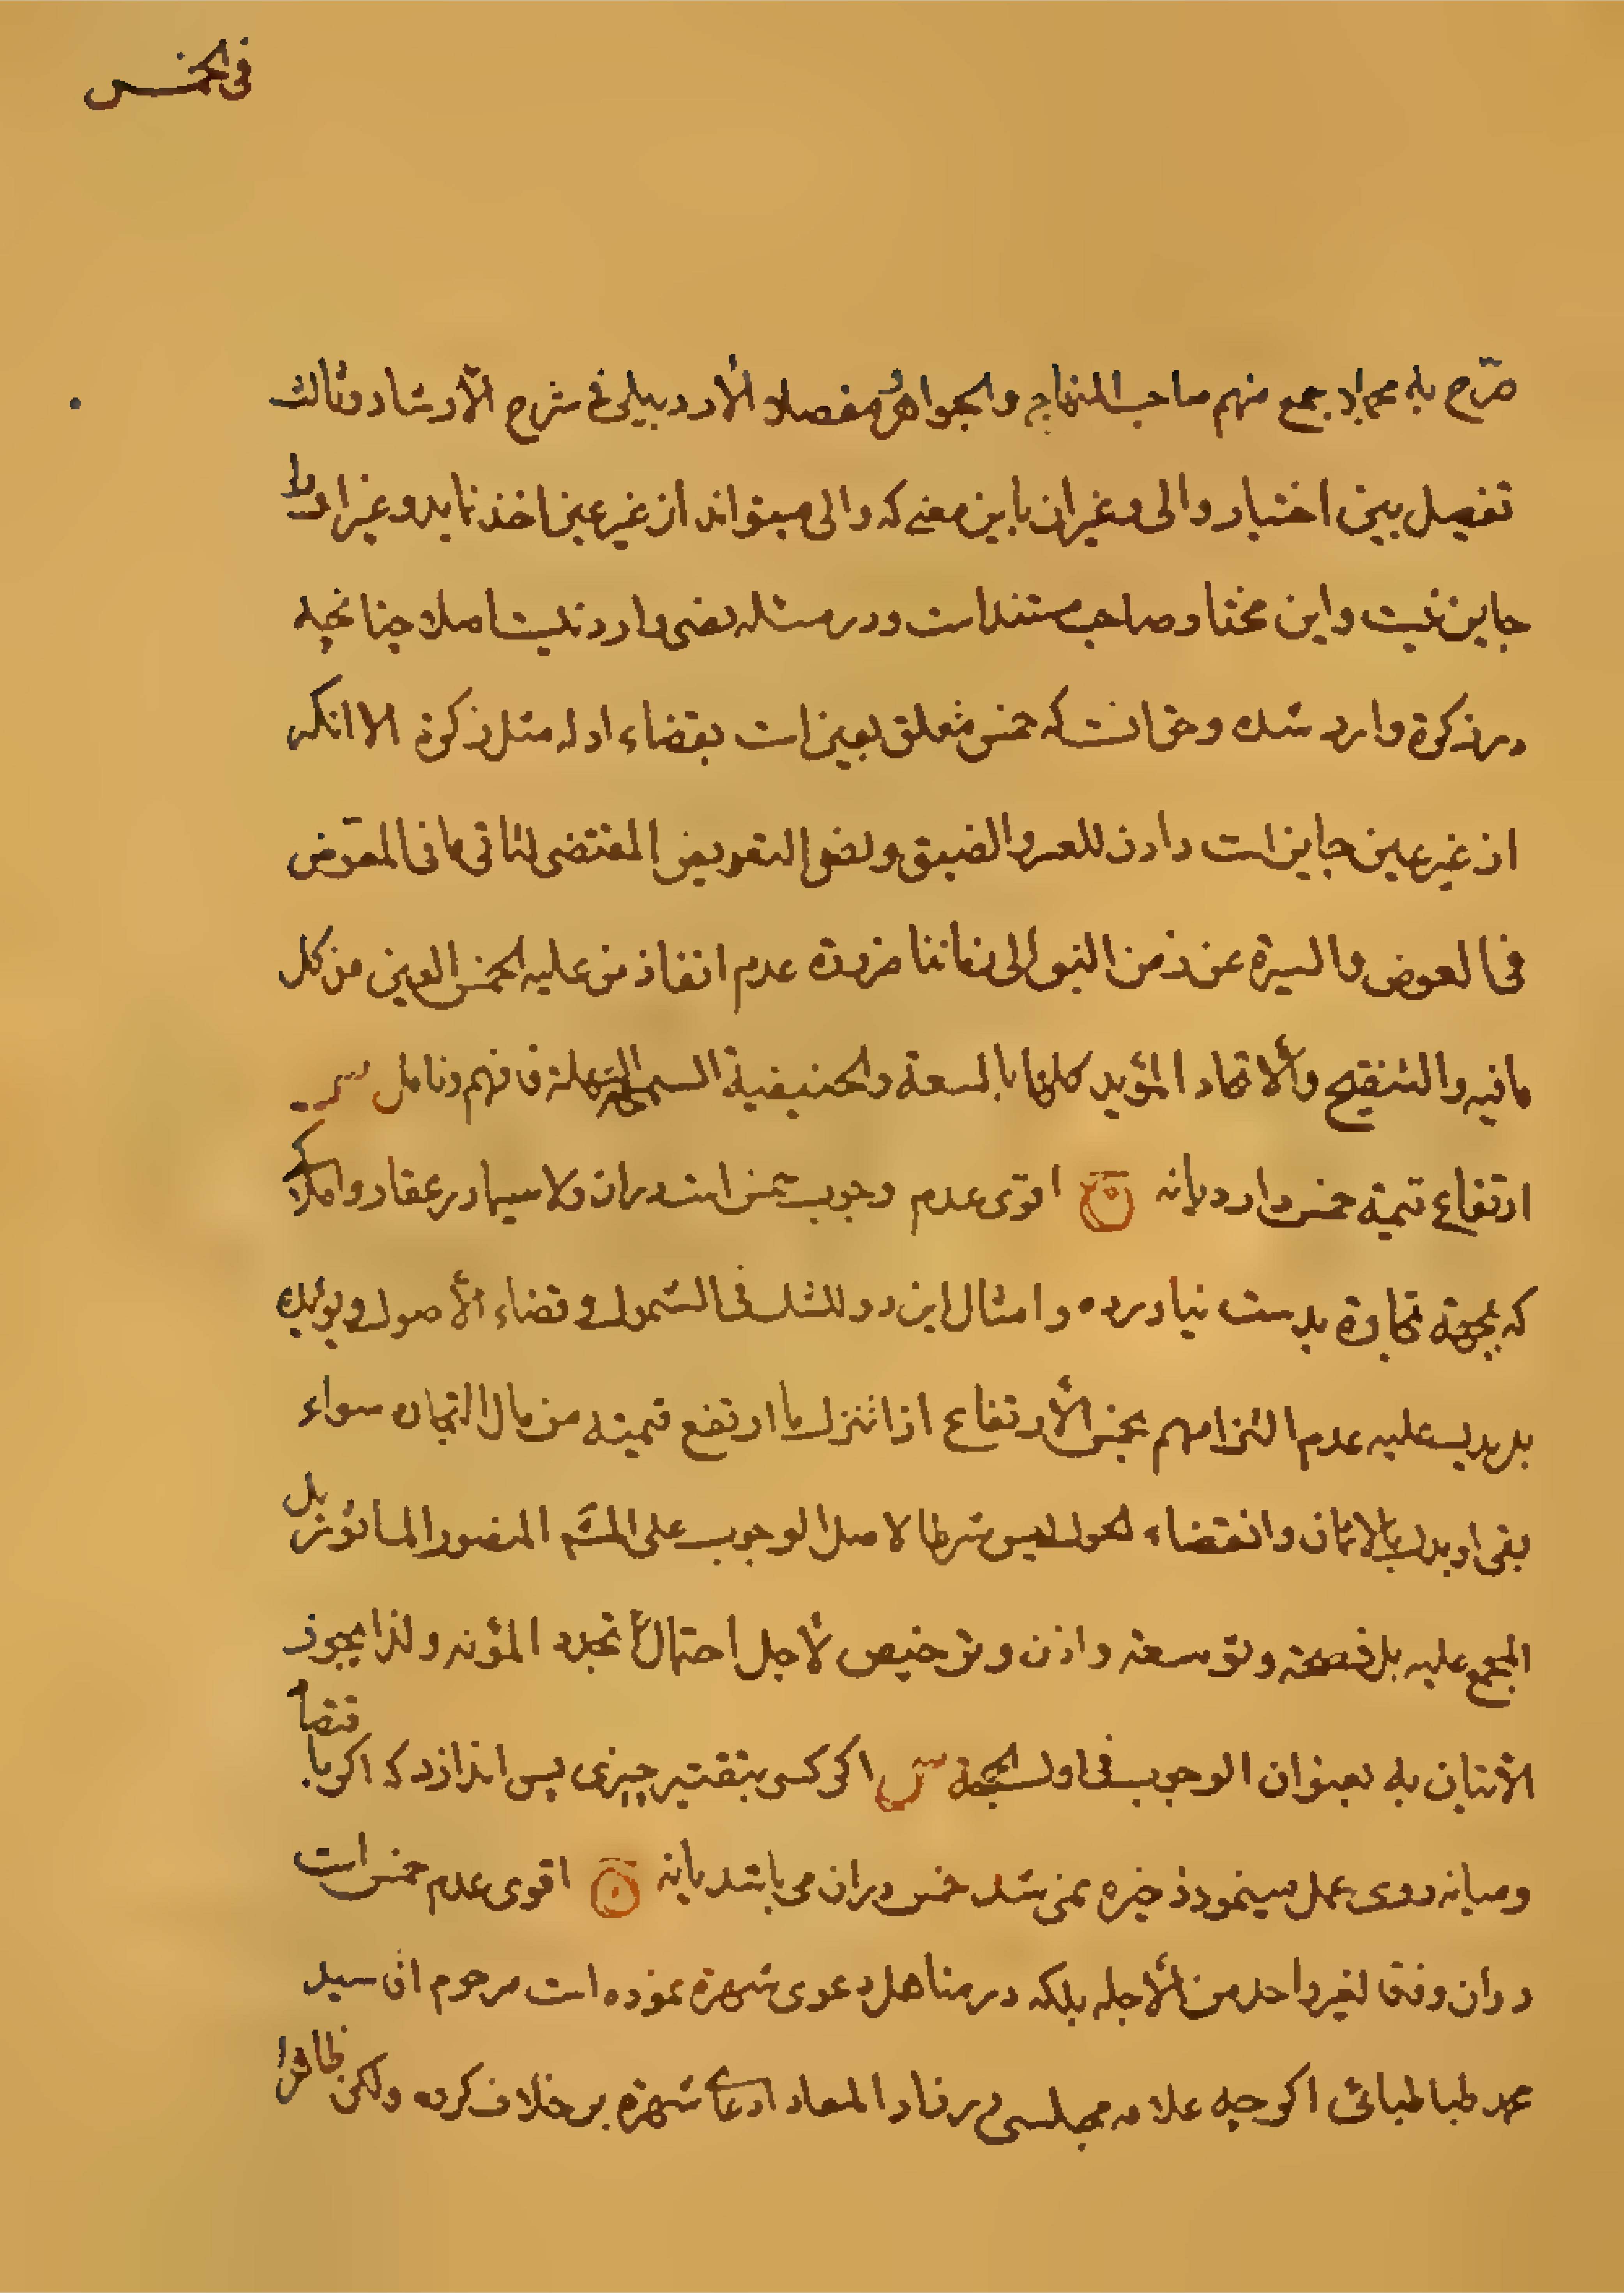 فی الخمس
صرّح به جمع منهم صاحب المناهج والجواهر مفصلا والأردبيلی فی شرح الأرشاد وثالث
تفصیل بین اختیار والی وغیران باین معنی که والی میتواند از غیر عین اخذ نماید وغیر او را
جایز نیست واین مختار صاحب مستند است ودر مسئله نصی وارد نیست اصلا چنانچه
در زکوة وارد شده وحق انست که خمس متعلق بعین است بقضاء ادله مثل زکوة الا انکه
از غیر عین جایز است دادن للعسر والضیق ولضو التعویض المقتضی لتاتی ما فی المعوّض
فی العوض والسیرة عن زمن النبی الی زماننا ضرورة عدم انفاذ من علیه الخمس العین من کل
مافیه والتنقیح والاتحاد المؤید کلها بالسعة والحنیفیة السمحة السهلة فافهم وتامل س
ارتفاع قیمة خمس دارد یا نه ج اقوی عدم وجوب خمس است دران ولا سیما در عقار واملاک
که بجهة تجارة بدست نیاورده وامثال این دو للشک فی الشمول وقضاء الأصول ویؤید
بل یدل علیه عدم التزامهم بخمس الأرتفاع اذا تنزل ما ارتفع قیمته من مال التجارة سواء
بقی او بدل بالاثمان وانقضاء الحول لیس شرطا لاصل الوجوب علی المتمّ المنصور الماثور بل
المجمع علیه بل فصحة وتوسعة واذن وترخیص لأجل احتمال تجدد المؤنه ولذا یجوز
الأتیان به بعنوان الوجوب فی اول السنة س اکر کسی بتقتیر چیزی پس اندازد که اکر با قتصاد
ومیانه روی عمل مینمود ذخیره نمی شد خمس دران می باشد یا نه ج اقوی عدم خمس است
در وان وفقا لغیر واحد من الأجله بلکه در مناهل دعوی شهرة نموده است مرحوم اقا سید
محمد طباطبائی اکر چه علامه مجلسی در زاد المعاد ادعای شهرة بر خلاف کرده ولکن ظاهرا